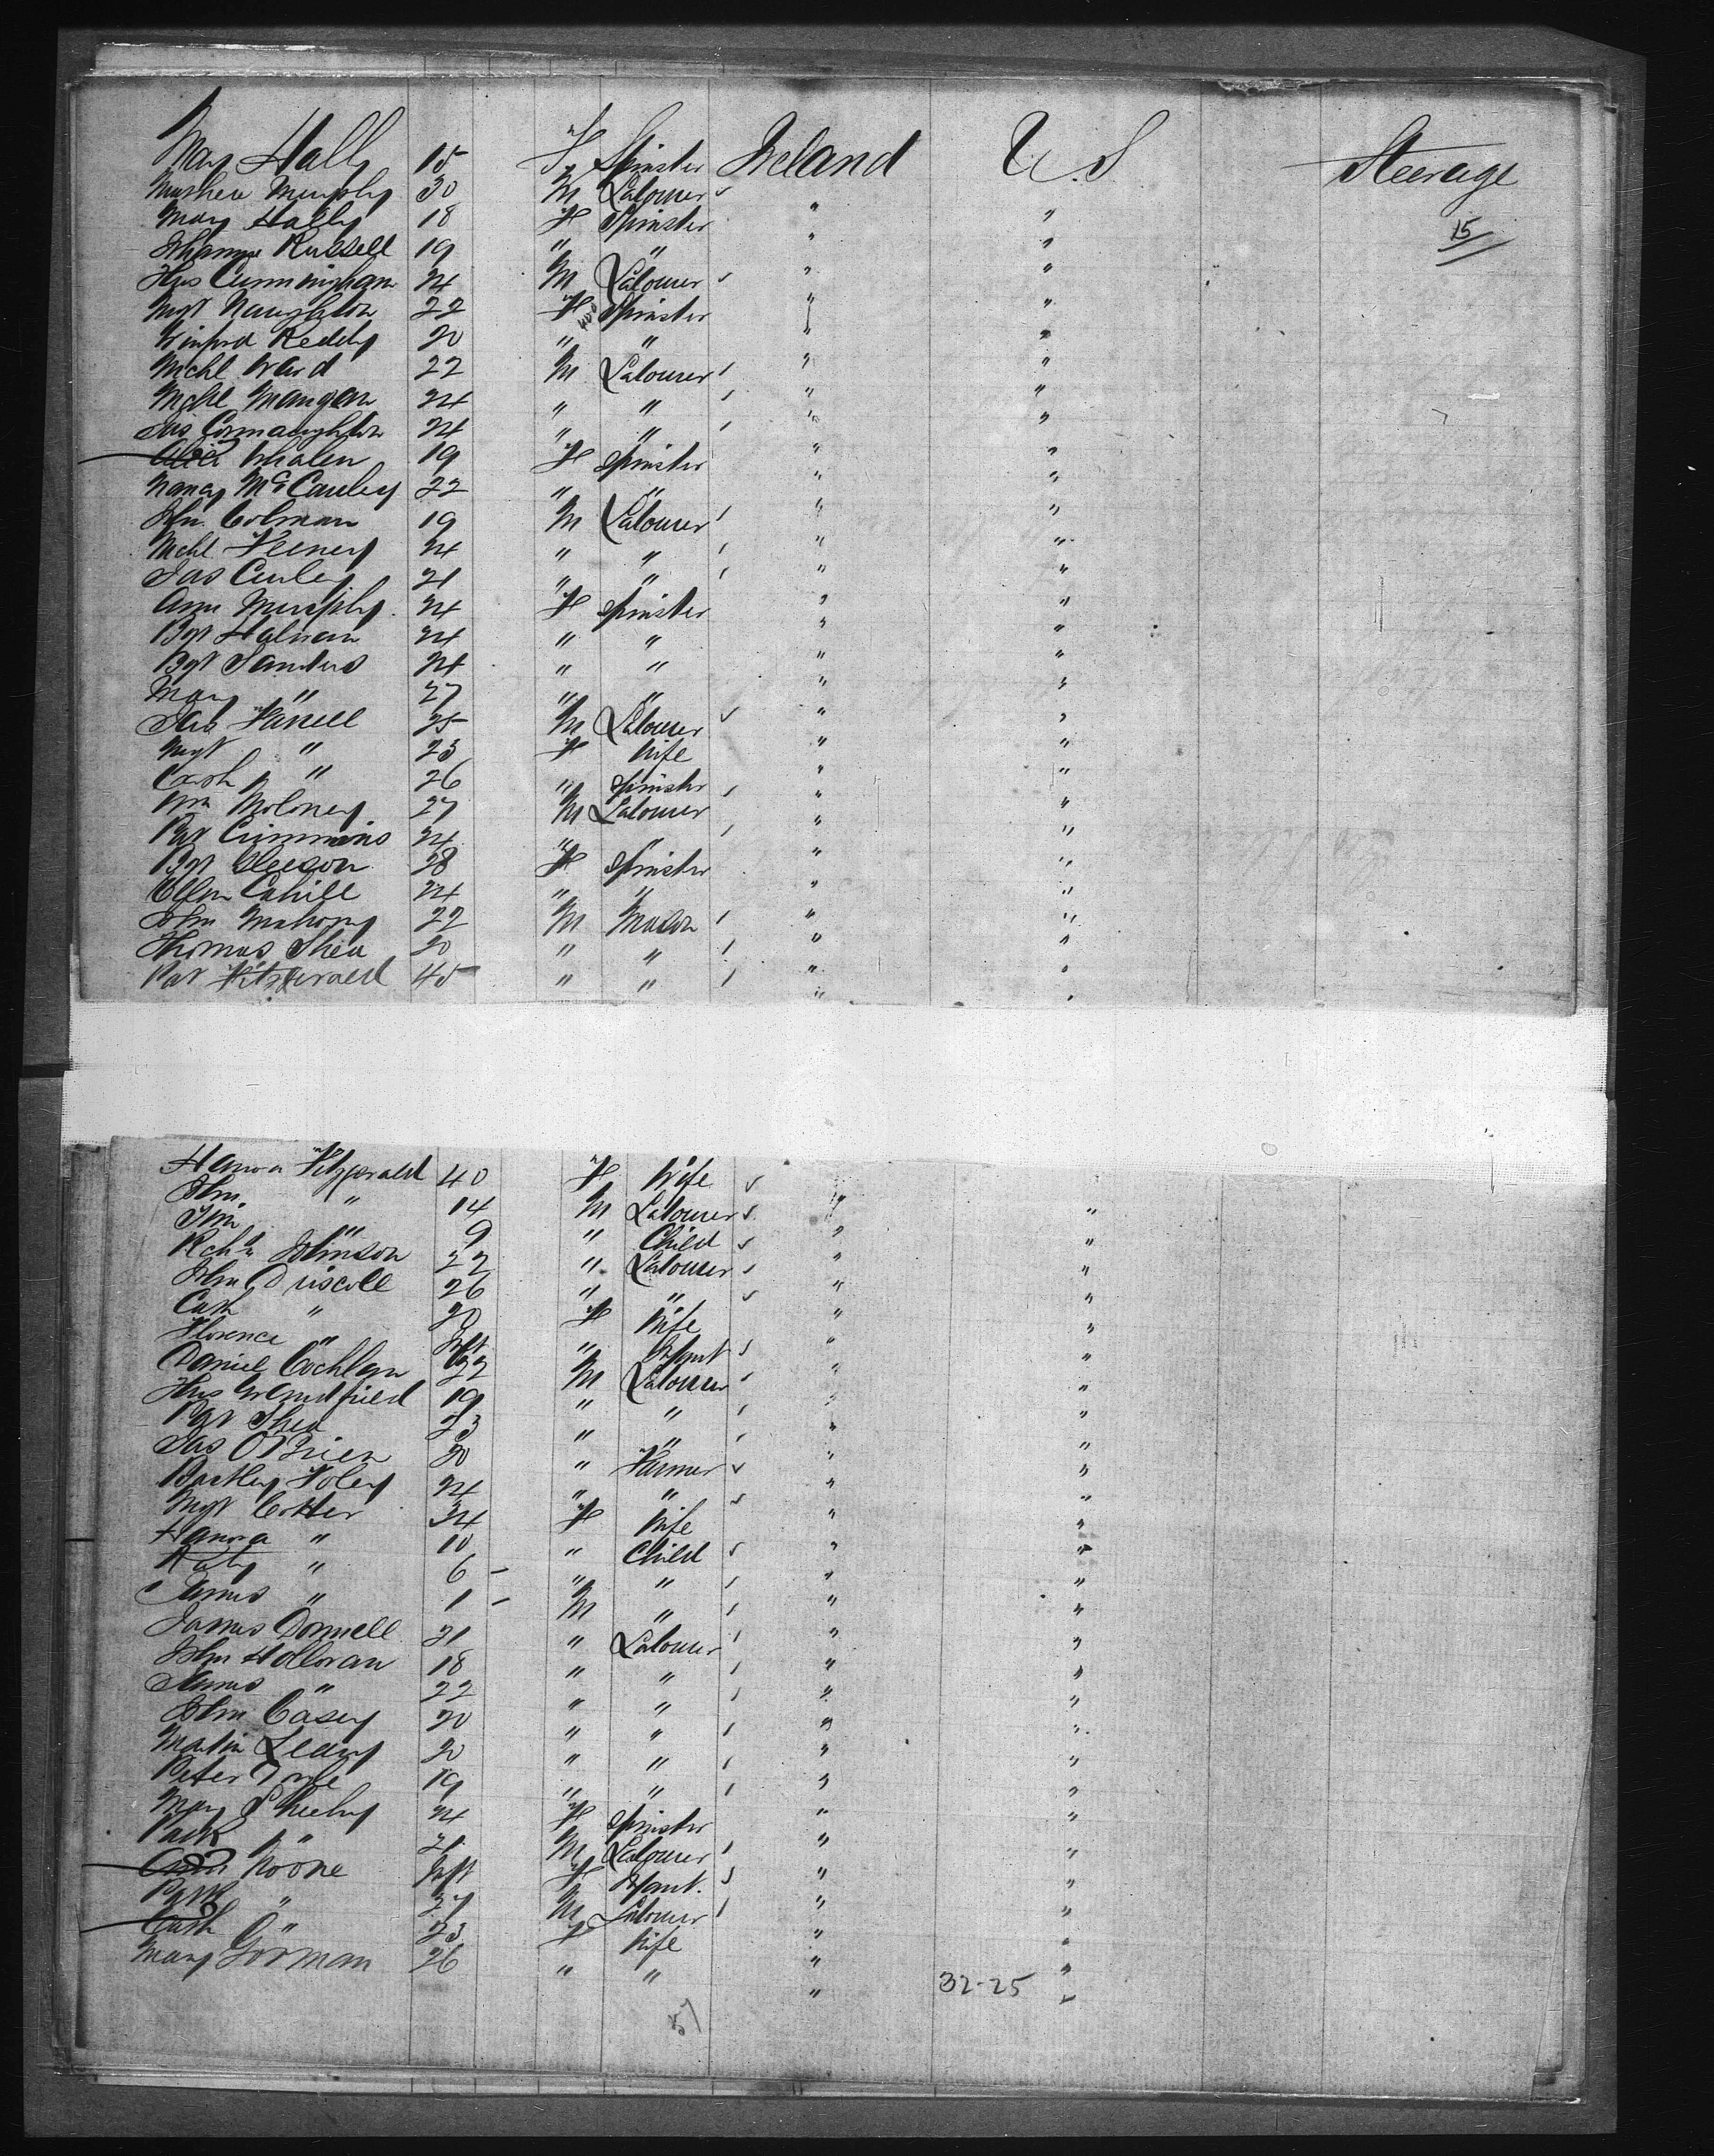 Mary Hally 15 F Spinster Ireland U.S Steerage
Mathew Murphy 30 M Labourer " "
Mary Hally 18 F Spinster " " 15
Johanna Russell 19 " " " "
Thos Cunningham 24 M Labourer " "
Mgt Naughton 22 F Spinster " "
Winford Reddy 20 " " " "
Michl Ward 22 M Labourer " "
Michl Mangan 24 " " " "
Jas Connaughton 24 " " " "
Whalen 19 F Spinster " "
Nancy McCauley 22 " " " "
Jhn. Colman 19 M Labourer " "
Michl Feeney 24 " " " "
Jas Curley 21 " " " "
Ann Murphy 24 F Spinster " "
Bgt Halnan 24 " " " "
Bgt Sanders 24 " " " "
Mary " 27 " " " "
Jas Farrell 25 M Labourer " "
Mgt " 23 F Wife " "
Cath " 26 " Spinster " "
Wm Moloney 27 M Labourer " "
Pat Cummins 24 " " " "
Bgt Gleeson 28 F Spinster " "
Ellen Cahill 24 " " " "
John Mahony 22 M Mason " "
Thomas Shea 20 " " " "
Pat Fitzgerald 45 " " " "
Hanora Fitzgerald 40 F Wife "
Jhn " 14 M Labourer " "
Tim " 9 " Child " "
Richd Johnson 22 " Labourer " "
John Driscoll 26 " " " "
Cath " 20 F Wife " "
Florence " Inft " Infant " "
Daniel Cochlan 22 M Labourer " "
Thos 19 " " " "
Pat Shea 23 " " " "
Jas O'Brien 20 " Farmer " "
Bartley Foley 24 " " " "
Mgt Cotter 34 F Wife " "
Hanora " 10 " Child " "
Katy " 6 " " " "
James " 1 M " " "
James Donnell 21 " Labourer " "
John Holloran 18 " " " "
James " 22 " " " "
John Casey 20 " " " "
Martin Leary 20 " " " "
Peter 19 " " " "
Mary Sheehy 24 F Spinster " "
Patk " 21 M Labourer " "
Noone Inft F Infant. " "
Patk " 27 M Labourer " "
Cath " 23 F Wife " "
Mary Gorman 26 " " " "
" 32-25
57